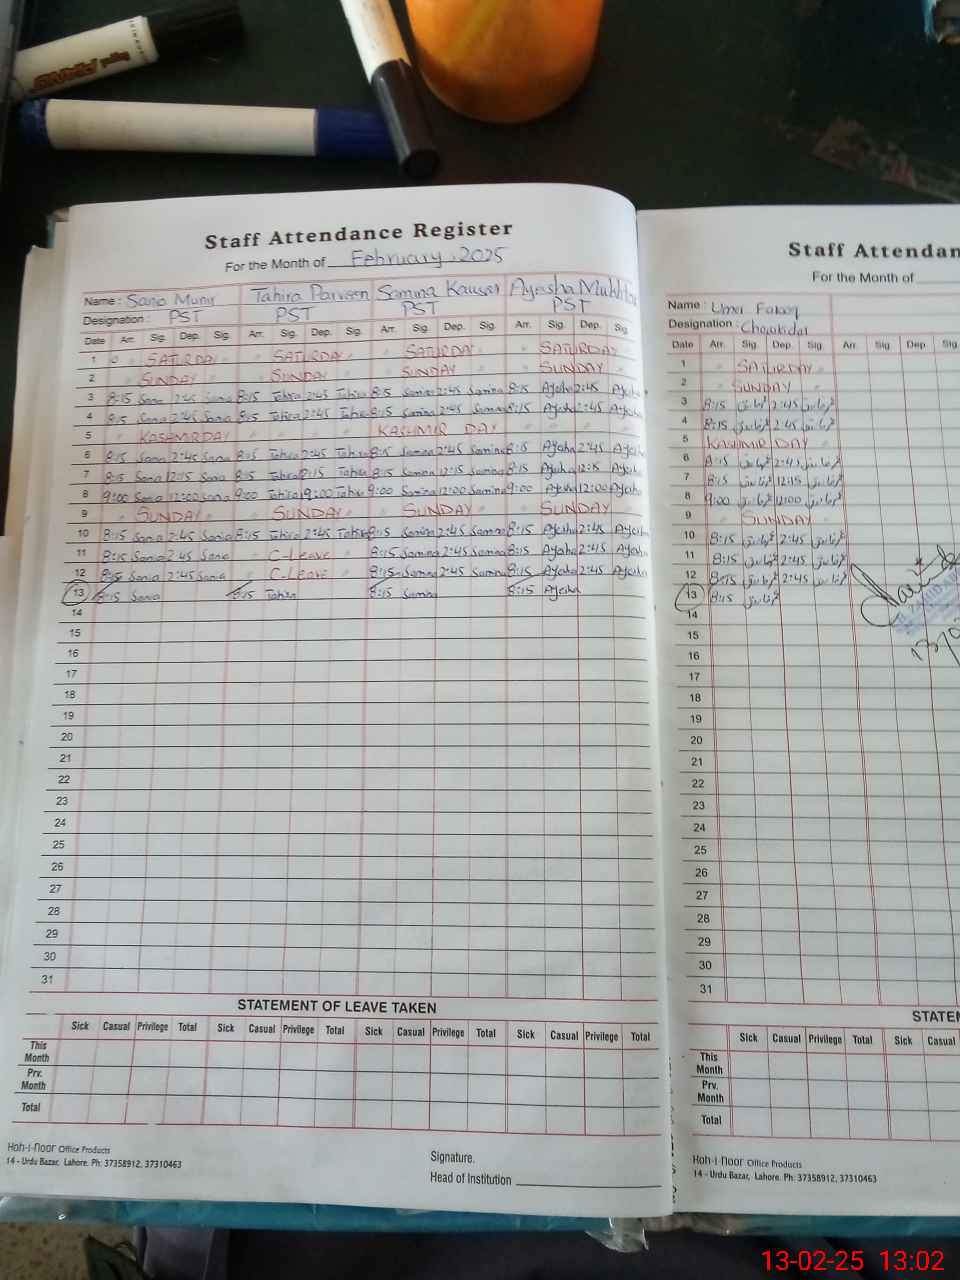 Staff Attendance Register
For the Month of February, 2025
Name : Sania Munir Tahira Parveen Samina Kausar Ayesha Mukhtar
Designation : PST PST PST PST
Date Arr. Sig. Dep. Sig. Arr. Sig. Dep. Sig. Arr. Sig. Dep. Sig. Arr. Sig. Dep. Sig.
1 SATURDAY SATURDAY SATURDAY SATURDAY
2 SUNDAY SUNDAY SUNDAY SUNDAY
3 8:15 Sania 2:45 Sania 8:15 Tahira 2:45 Tahira 8:15 Samina 2:45 Samina 8:15 Ayesha 2:45 Ayesha
4 8:15 Sania 2:45 Sania 8:15 Tahira 2:45 Tahira 8:15 Samina 2:45 Samina 8:15 Ayesha 2:45 Ayesha
5 KASHMIR DAY KASHMIR DAY
6 8:15 Sania 2:45 Sania 8:15 Tahira 2:45 Tahira 8:15 Samina 2:45 Samina 8:15 Ayesha 2:45 Ayesha
7 8:15 Sania 12:15 Sania 8:15 Tahira Tahira 8:15 Samina 12:15 Samina 8:15 Ayesha 12:15 Ayesha
8 9:00 Sania 12:00 Sania 9:00 Tahira 9:00 Tahira 9:00 Samina 12:00 Samina 9:00 Ayesha 12:00 Ayesha
9 SUNDAY SUNDAY SUNDAY SUNDAY
10 8:15 Sania 2:45 Sania 8:15 Tahira 2:45 Tahira 8:15 Samina 2:45 Samina 8:15 Ayesha 2:45 Ayesha
11 8:15 Sania 2:45 Sania C-Leave 8:15 Samina 2:45 Samina 8:15 Ayesha 2:45 Ayesha
12 8:15 Sania 2:45 Sania C-Leave 8:15 Samina 2:45 Samina 8:15 Ayesha 2:45 Ayesha
13 8:15 Sania 8:15 Tahira 8:15 Samina 8:15 Ayesha
14
15
16
17
18
19
20
21
22
23
24
25
26
27
28
29
30
31
STATEMENT OF LEAVE TAKEN
Sick Casual Privilege Total Sick Casual Privilege Total Sick Casual Privilege Total Sick Casual Privilege Total
This Month
Prv. Month
Total
Koh-i-noor Office Products
14 - Urdu Bazar, Lahore. Ph: 37358912, 37310463
Signature.
Head of Institution
Staff Attendan
For the Month of
Name : Umar Farooq
Designation : Chowkidar
Date Arr. Sig. Dep. Sig. Arr. Sig Dep. Sig.
1 SATURDAY
2 SUNDAY
3 8:15 2:45
4 8:15 2:45
5 KASHMIR DAY
6 8:15 2:45
7 8:15 12:15
8 9:00 12:00
9 SUNDAY
10 8:15 2:45
11 8:15 2:45
12 8:15 2:45
13 8:15
14
15
16
17
18
19
20
21
22
23
24
25
26
27
28
29
30
31
STATEM
Sick Casual Privilege Total Sick Casual
This Month
Prv. Month
Total
Koh-i-noor Office Products
14 - Urdu Bazar, Lahore. Ph: 37358912, 37310463
13-02-25 13:02